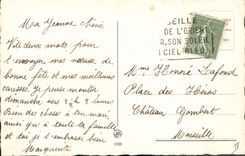 Ma Yvonne Chérie
Vite deux mots pour
t'envoyer mes vœux de
bonne fête et mes meilleures
caresses. Je pense monter
dimanche vers 2h½ 3 heures
Bien des choses à ton mari
ainsi que à toute la famille
et toi je t'embrasse bien
Marguerite
EILLE
DE L'ORIENT
R.SON SOLEIL
CIEL BLEU
Mme Honoré Lafond
Place des Héros
Château Gombert
Marseille